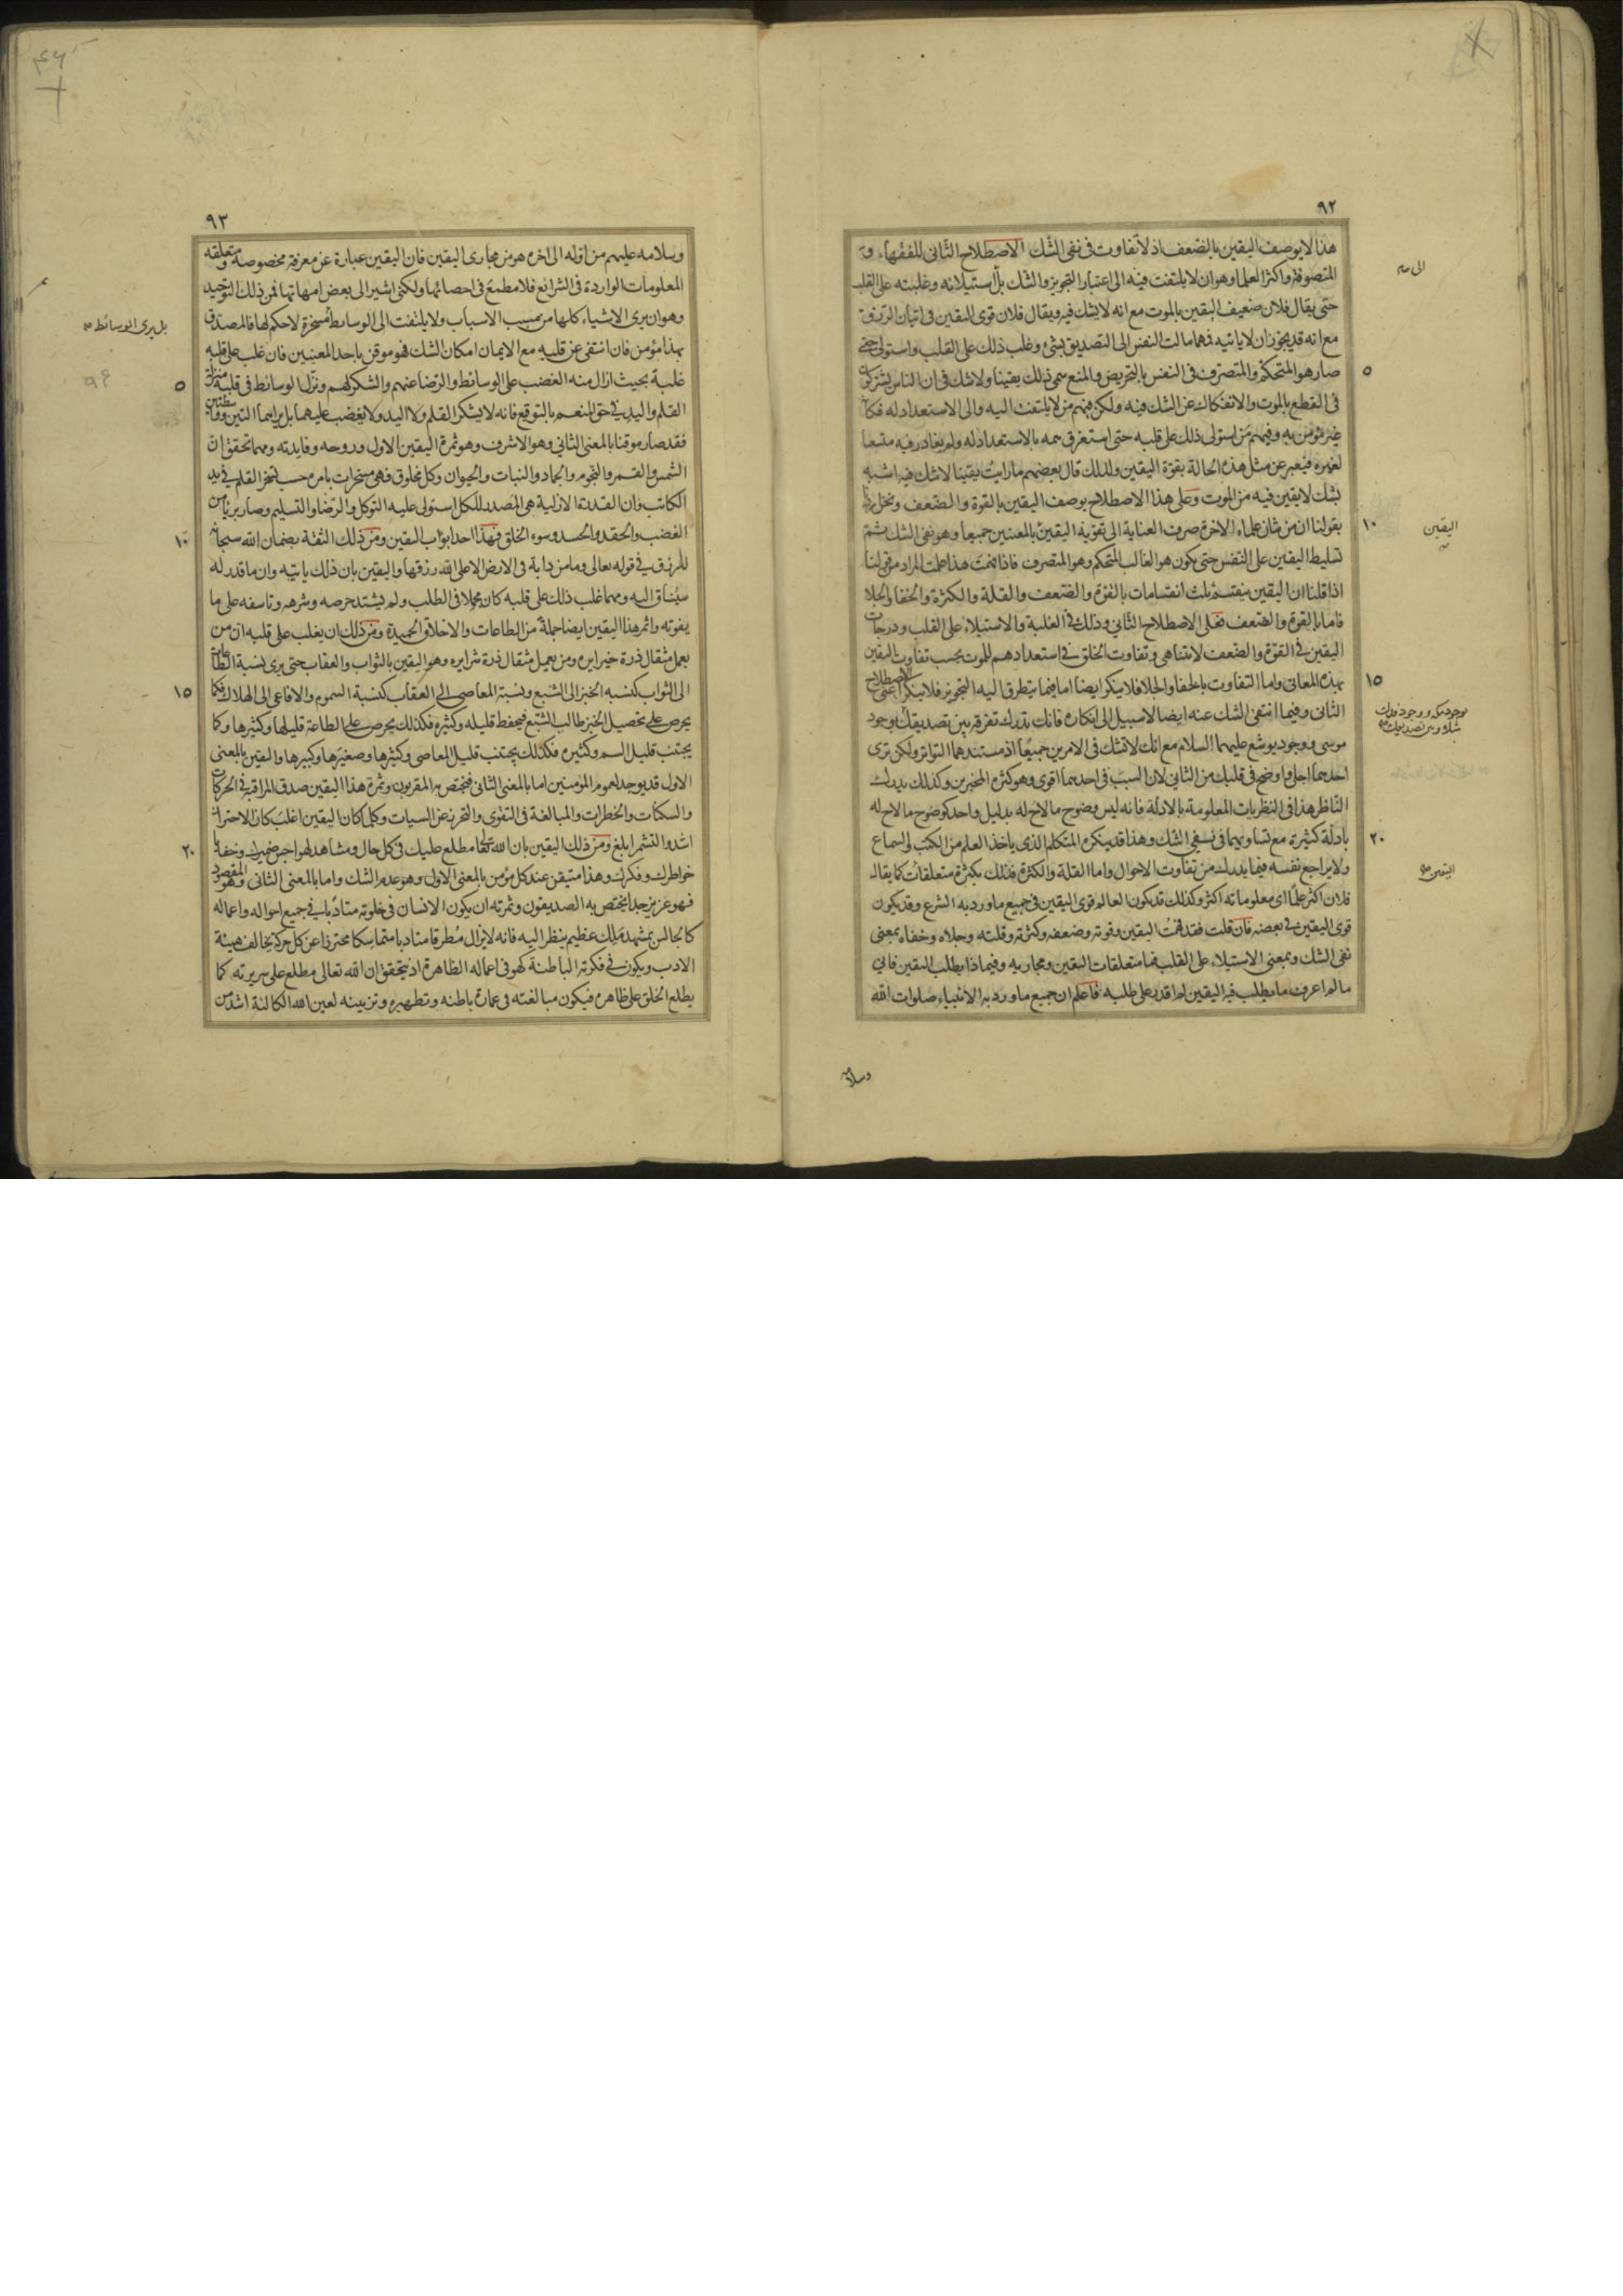 ٩٢
هذا لا يوصف اليقين بالضعف اذ لا تفاوت فى نفى الشك الاصطلاح الثانى للفقهاء و
المتصوفة واكثر العلما وهو ان لا يلتفت فيه الى اعتبار التجويز والشك بل استيلائه وغلبته على القلب
حتى يقال فلان ضعيف اليقين بالموت مع انه لا يشك فيه ويقال فلان قوى اليقين فى اتيان الرزق
مع انه قد يجوز ان لا ياتيه فمهما مالت النفس الى التصديق بشئ وغلب ذلك على القلب واستولى حتى
صار هو المتحكم والمتصرف فى النفس بالتحريض والمنع سمى ذلك يقينا ولا شك فى ان الناس يشتركون
فى القطع بالموت والانفكاك عن الشك فيه ولكن فيهم من لا يلتفت اليه والى الاستعداد له فكانه
غير مؤمن به وفيهم من استولى ذلك على قلبه حتى استغرق همه بالاستعداد له ولم يغادر فيه متسعا
لغيره فيعبر عن مثل هذه الحالة بقوة اليقين ولذلك قال بعضهم ما رايت يقينا لا شك فيه اشبه
بشك لا يقين فيه من الموت وعلى هذا الاصطلاح يوصف اليقين بالقوة والضعف ونحن اردنا
بقولنا ان من شان علماء الاخرة صرف العناية الى تقوية اليقين بالمعنيين جميعا وهو نفى الشك ثم
تسليط اليقين على النفس حتى يكون هو الغالب المتحكم وهو المتصرف فاذا فهمت هذا علمت المراد من قولنا
اذا قلنا ان اليقين ينقسم ثلث انقسامات بالقوة والضعف والقلة والكثرة والخفا والجلا
فاما بالقوة والضعف فعلى الاصطلاح الثانى وذلك فى الغلبة والاستيلاء على القلب ودرجات
اليقين فى القوة والضعف لا تتناهى وتفاوت الخلق فى استعدادهم للموت بحسب تفاوت اليقين
بهذه المعانى واما التفاوت بالخفا والجلا فلا ينكر ايضا اما فيما يتطرق اليه التجويز فلا ينكر اعنى الاصطلاح
الثانى وفيما انتفى الشك عنه ايضا لا سبيل الى انكاره فانك تدرك تفرقة بين تصديقك بوجود
موسى ووجود يوشع عليهما السلام مع انك لا تشك فى الامرين جميعا اذ مستندهما التواتر ولكن ترى
احدهما اجلى واوضح فى قلبك من الثانى لان السبب فى احدهما اقوى وهو كثرة المخبرين وكذلك يدرك
الناظر هذا فى النظريات المعلومة بالادلة فانه ليس وضوح ما لاح له بدليل واحد كوضوح ما لاح له
بادلة كثيرة مع تساويهما فى نفى الشك وهذا قد ينكره المتكلم الذى ياخذ العلم من الكتب والسماع
ولا يراجع نفسه فيما يدرك من تفاوت الاحوال واما القلة والكثرة فذلك بكثرة متعلقات كما يقال
فلان اكثر علما اى معلوماته اكثر وكذلك قد يكون العالم قوى اليقين فى جميع ما ورد به الشرع وقد يكون
قوى اليقين فى بعضه فان قلت فقد فهمت اليقين وقوته وضعفه وكثرته وقلته وجلاه وخفاه بمعنى
نفى الشك وبمعنى الاستيلاء على القلب فما متعلقات اليقين ومجاريه وفيما ذا يطلب اليقين فانى
ما لم اعرف ما يطلب فيه اليقين لم اقدر على طلبه فاعلم ان جميع ما ورد به الانبياء صلوات الله
وسلامه
٥
١٠
١٥
٢٠
اليقين
٩٣
وسلامه عليهم من اوله الى اخره هو من مجارى اليقين فان اليقين عبارة عن معرفة مخصوصة ومتعلقه
المعلومات الواردة فى الشرايع فلا مطمع فى احصائها ولكنى اشير الى بعض امهاتها فمن ذلك التوحيد
وهو ان يرى الاشياء كلها من مسبب الاسباب ولا يلتفت الى الوسايط مسخرة لا حكم لها فالمصدق
بهذا مؤمن فان انتفى عن قلبه مع الايمان امكان الشك فهو موقن باحد المعنيين فان غلب على قلبه
غلبة بحيث ازال منه الغضب على الوسائط والرضا عنهم والشكر لهم ونزل الوسائط فى قلبه منزلة
القلم واليد فى حق المنعم بالتوقيع فانه لا يشكر القلم ولا اليد ولا يغضب عليهما بل يراهما التين وواسطتين
فقد صار موقنا بالمعنى الثانى وهو الاشرف وهو ثمرة اليقين الاول وروحه وفايدته ومهما تحقق ان
الشمس والقمر والنجوم والجماد والنبات والحيوان وكل مخلوق فهى مسخرات بامره حسب تسخر القلم فى يد
الكاتب وان القدرة الازلية هى المصدر للكل استولى عليه التوكل والرضا والتسليم وصار بريئا من
الغضب والحقد والحسد وسوء الخلق فهذا احد ابواب اليقين ومن ذلك الثقة بضمان الله سبحانه
للرزق فى قوله تعالى وما من دابة فى الارض الا على الله رزقها واليقين بان ذلك ياتيه وان ما قدر له
سيُساق اليه ومهما غلب ذلك على قلبه كان مجملا فى الطلب ولم يشتد حرصه وشرهه وتاسفه على ما
يفوته واثمر هذا اليقين ايضا جملة من الطاعات والاخلاق الحميدة ومن ذلك ان يغلب على قلبه ان من
يعمل مثقال ذرة خيرا يره ومن يعمل مثقال ذرة شرا يره وهو اليقين بالثواب والعقاب حتى يرى نسبة الطاعات
الى الثواب كنسبة الخبز الى الشبع ونسبة المعاصى الى العقاب كنسبة السموم والافاعى الى الهلاك فكما
يحرص على تحصيل الخبز طالب الشبع فيحفظ قليله وكثيره فكذلك يحرص على الطاعة قليلها وكثيرها وكما
يجتنب قليل السم وكثيره فكذلك يجتنب قليل المعاصى وكثيرها وصغيرها وكبيرها واليقين بالمعنى
الاول قد يوجد لعموم المؤمنين اما بالمعنى الثانى فيختص به المقربون وثمرة هذا اليقين صدق المراقبة فى الحركات
والسكنات والخطرات والمبالغة فى التقوى والتحرز عن السيات وكلما كان اليقين اغلب كان الاحتراز
اشد والتشمر ابلغ ومن ذلك اليقين بان الله تعالى مطلع عليك فى كل حال ومشاهد لهواجس ضميرك وخفايا
خواطرك وفكرك وهذا متيقن عند كل مؤمن بالمعنى الاول وهو عدم الشك واما بالمعنى الثانى وهو المقصود
فهو عزيز جدا يختص به الصديقون وثمرته ان يكون الانسان فى خلوته متادبا فى جميع احواله واعماله
كالجالس بمشهد ملك عظيم ينظر اليه فانه لا يزال مُطرقا متادبا متماسكا محترزا عن كل حركة يخالف هيئة
الادب ويكون فى فكرته الباطنة كهو فى اعماله الظاهرة اذ يتحقق ان الله تعالى مطلع على سريرته كما
يطلع الخلق على ظاهره فيكون مبالغته فى عمارة باطنه وتطهيره وتزيينه لعين الله الكالئة اشد من
٥
١٠
١٥
٢٠
بل يرى الوسائط